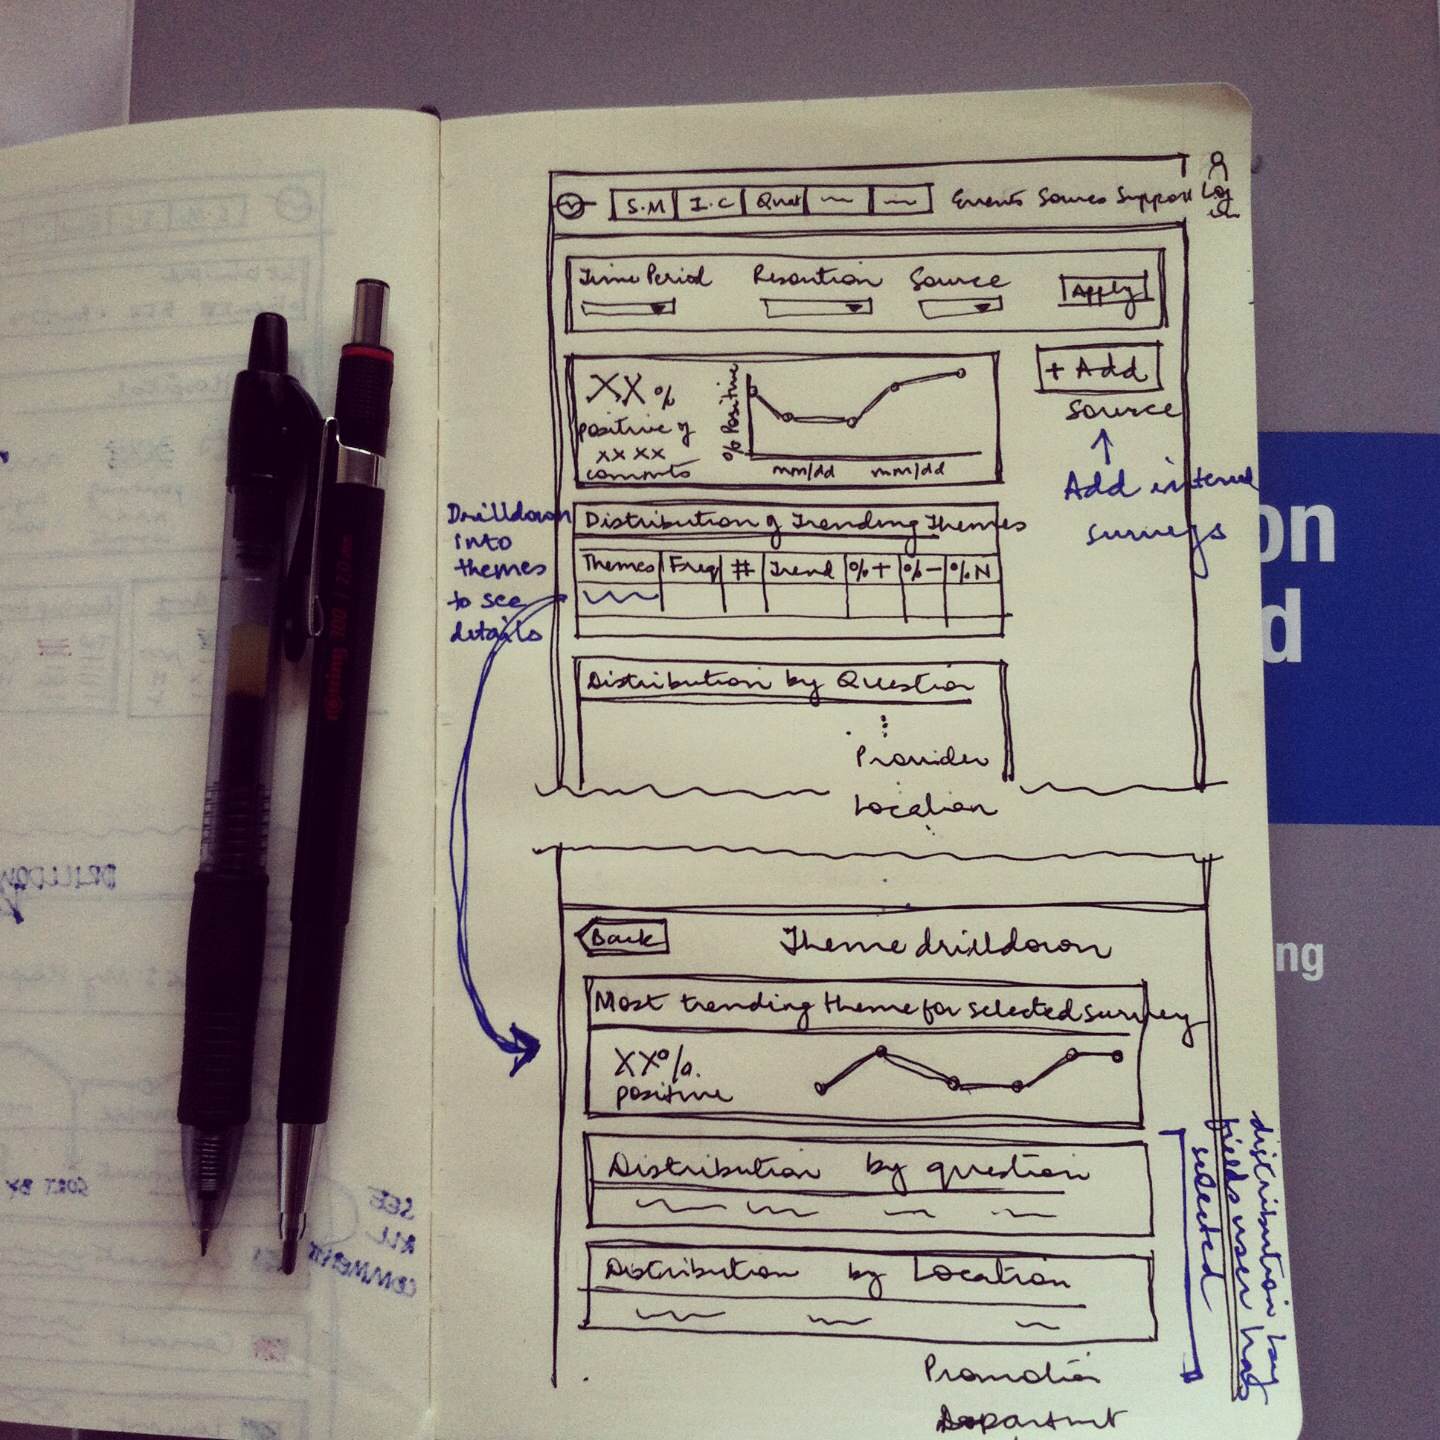 S.M I.C Qual Events Sources Support Log in
Time Period Resolution Source Apply
XX% positive of xx xx comments
% Positive
mm/dd mm/dd
+ Add
source
Add internal
surveys
Drilldown
into
themes
to see
details
Distribution of Trending Themes
Themes Freq # Trend %+ %- %N
Distribution by Question
Provider
Location
Back Theme drilldown
Most trending theme for selected survey
XX%
positive
Distribution by question
Distribution by Location
distribution by
fields user has
selected
Promotion
Department
on
d
ng
rotring 300 / 2.0
SEE
ALL
COMMENTS
SORT BY